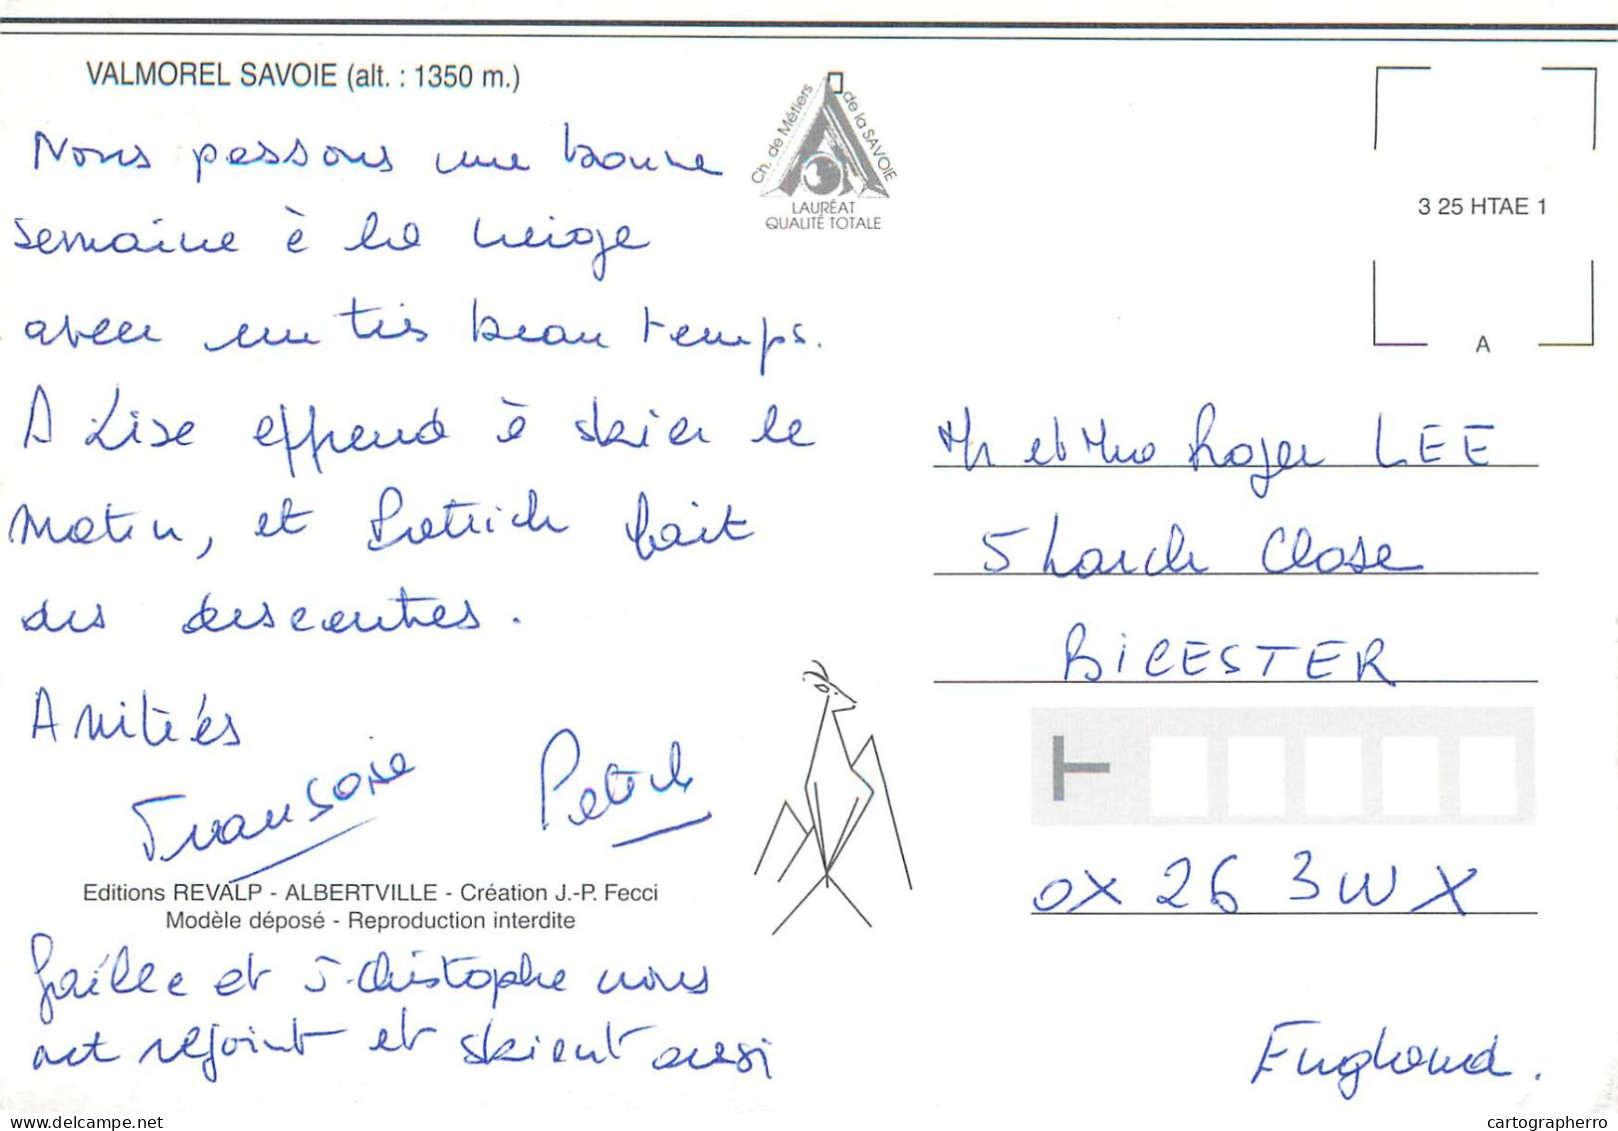 VALMOREL SAVOIE (alt. : 1350 m.)
Nous passons une bonne
semaine à la neige
avec un très beau temps.
A Lise apprend à skier le
matin, et Patrick fait
des descentes.
Amitiés
Françoise Patrick
Editions REVALP - ALBERTVILLE - Création J.-P. Fecci
Modèle déposé - Reproduction interdite
Gaëlle et J-Christophe nous
ont rejoint et skient aussi
Ch. de Métiers de la SAVOIE
LAURÉAT
QUALITÉ TOTALE
3 25 HTAE 1
A
Mr et Mme Roger LEE
5 Larch Close
BICESTER
T
OX 26 3WX
England.
cartographerro